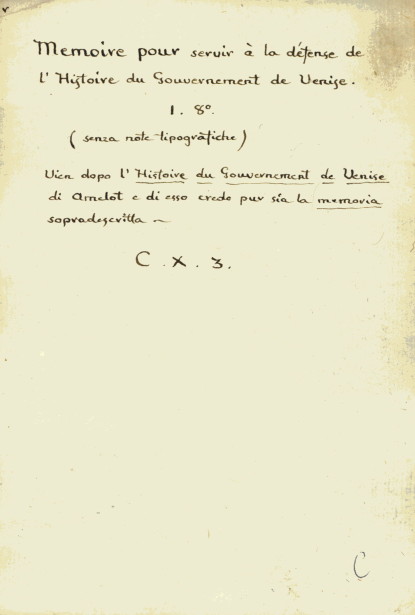 Memoire pour servir à la défense de
l'Histoire du Gouvernement de Venise.
1. 8º.
( senza note tipografiche )
Vien dopo l'Histoire du Gouvernement de Venise
di Amelot e di esso crede pur sia la memoria
sopradescritta ~
C. X. 3.
C